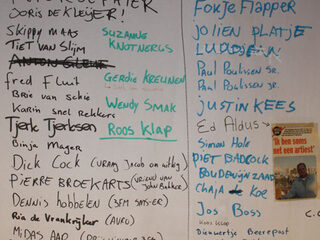 Joris de Kleijer!
Skippy Maas
Tiet van Slijm
Anton Gleuf
fred Fluit
Brie van schie
Karin snel rekkers
Tjerk Tjerksen
Binja Mager
Dick Cock
Pierre Broekarts
Dennis hobbelen
Ria de Vrankrijker (AURO)
Midas Aao
Suzanne
Knotnerus
Gerdie Kreunen
Wendy Smak
Roos Klap
Fokje Flapper
Jolien Platje
Luuldjein
Paul Poulissen Sr.
Paul Poulissen Jr.
Justin Kees
Ed Aldus
Simon Hole
Piet Badcock
Boudewijn Zaad
Chaja Koe
Jos Boss
Roos Klap
Dieuwertje Beerepoot
'Ik ben soms
net een artiest'